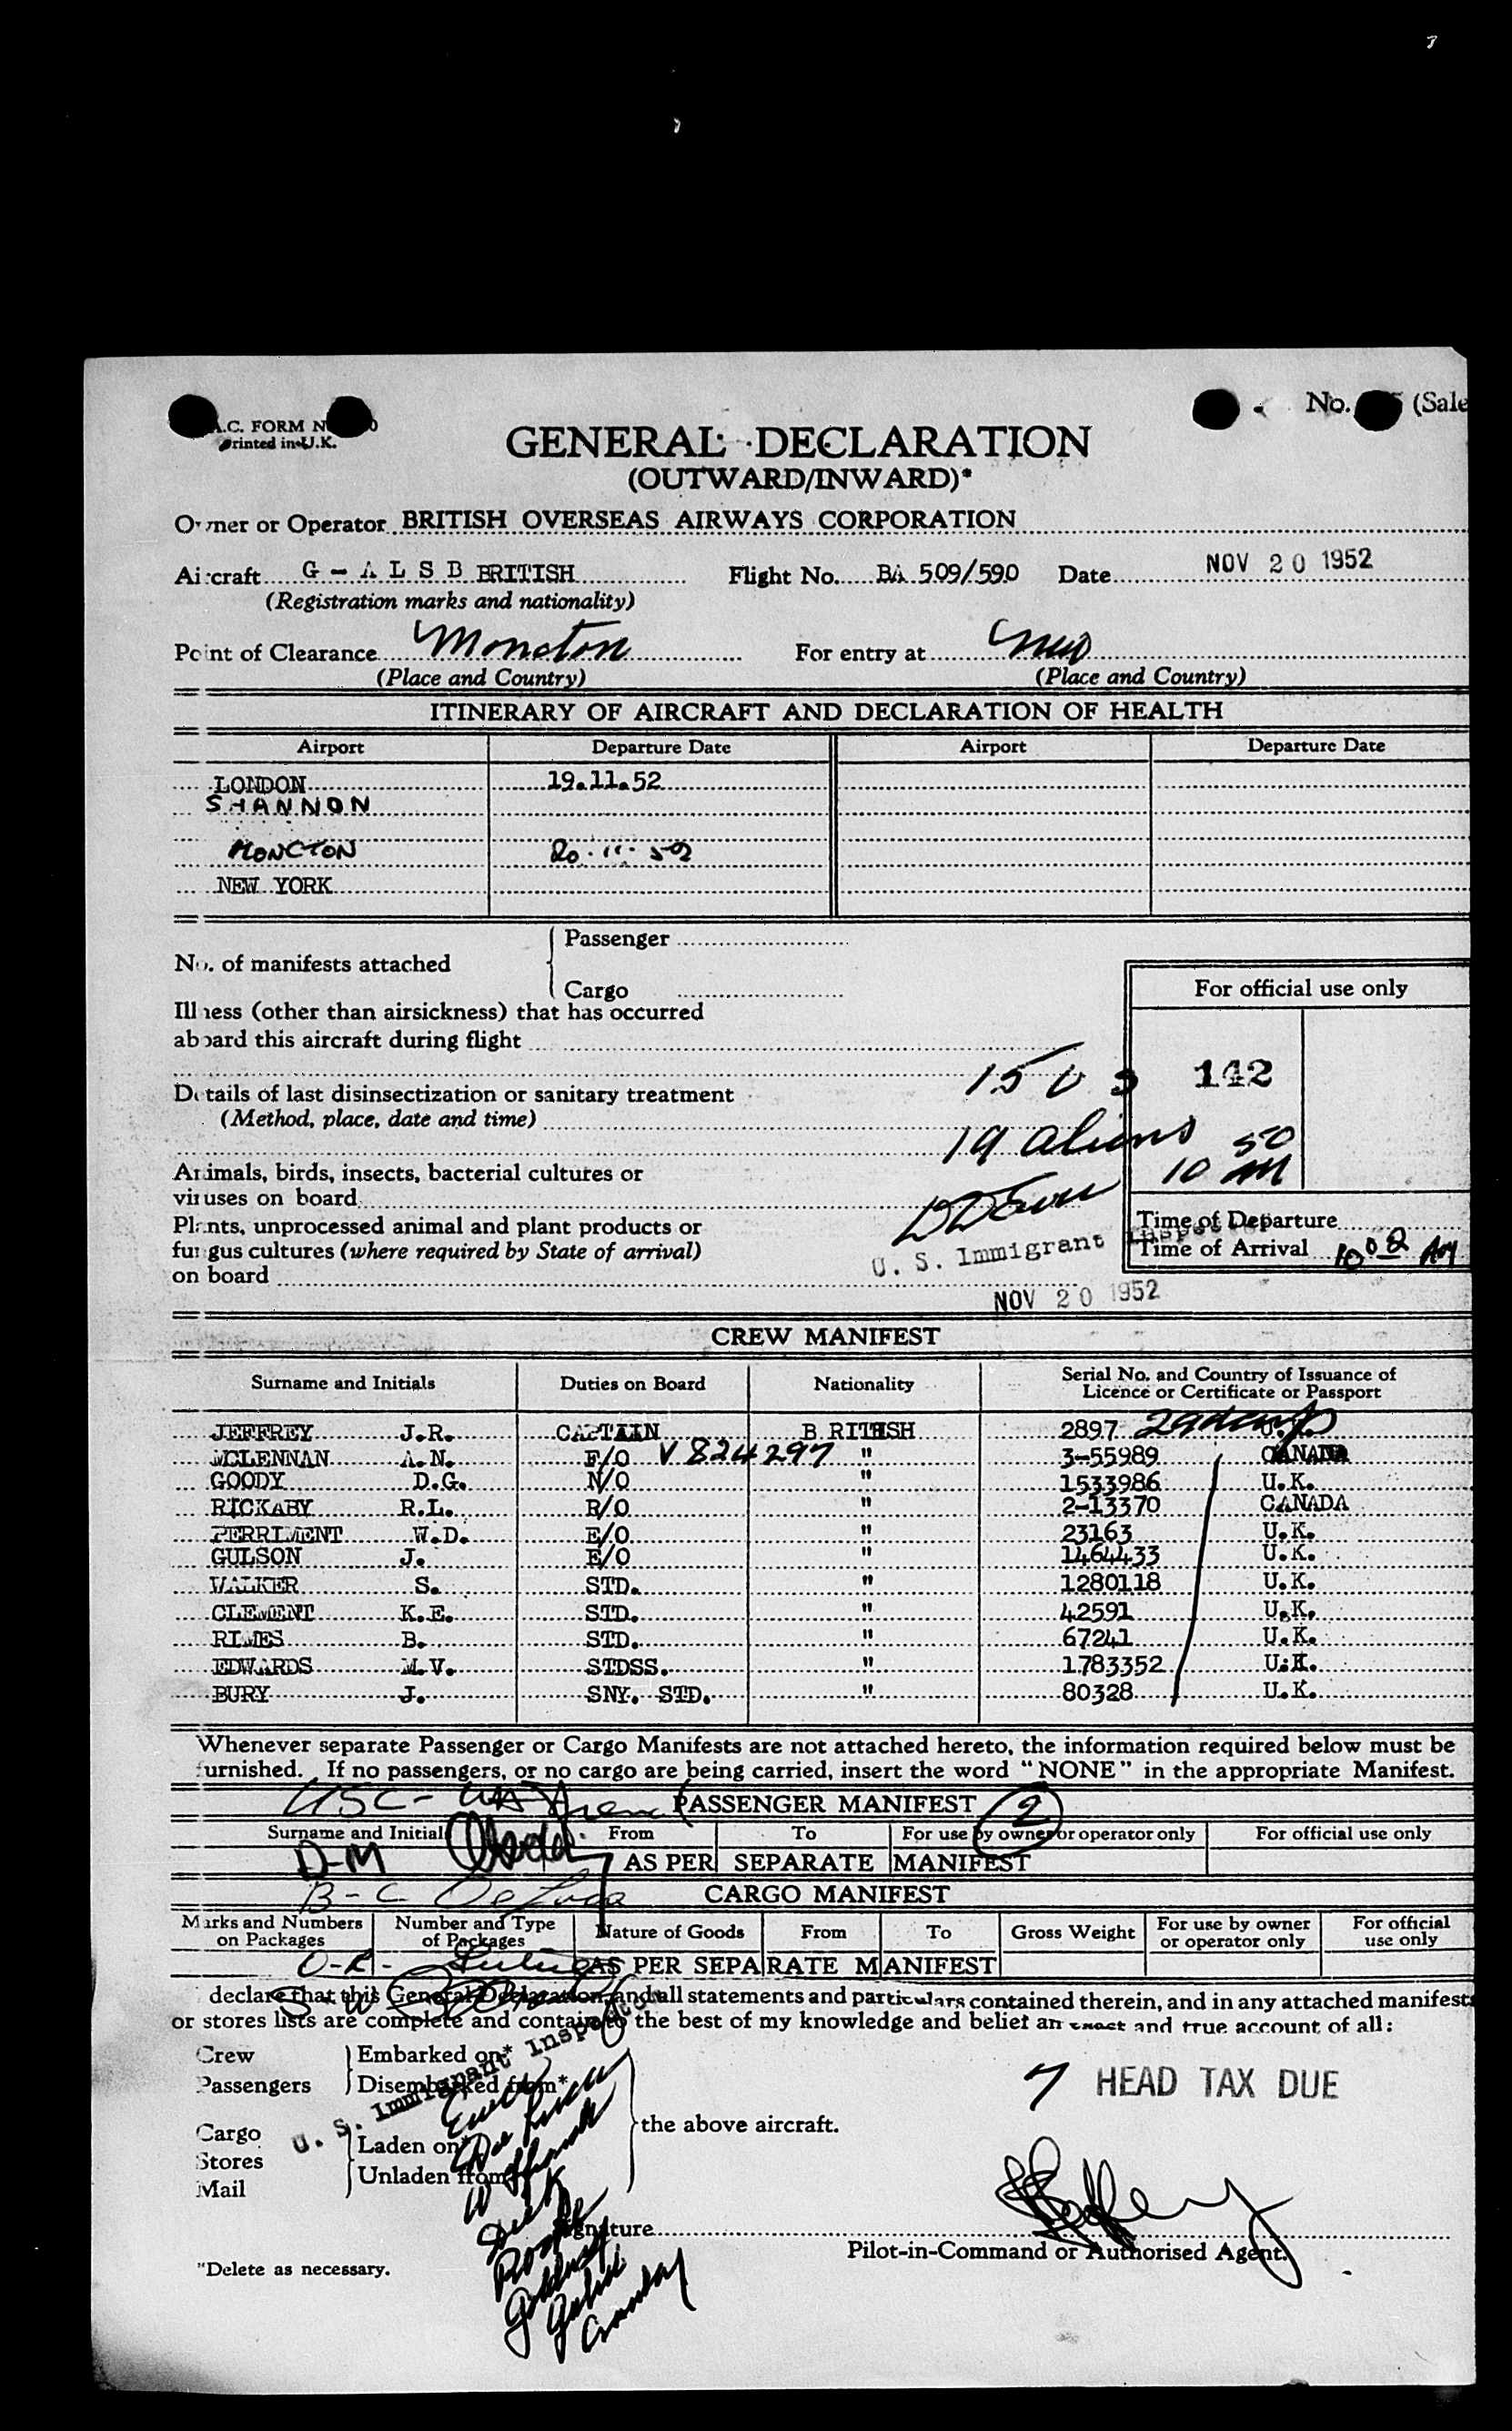 No. (Sale
A.C. FORM N
Printed in U.K.
GENERAL DECLARATION
(OUTWARD/INWARD)*
Owner or Operator BRITISH OVERSEAS AIRWAYS CORPORATION
Aircraft G - A L S B BRITISH Flight No. BA 509/590 Date NOV 20 1952
(Registration marks and nationality)
Point of Clearance Moncton For entry at
(Place and Country) (Place and Country)
ITINERARY OF AIRCRAFT AND DECLARATION OF HEALTH
Airport Departure Date Airport Departure Date
LONDON 19.11.52
SHANNON
MONCTON 20.11.52
NEW YORK
Passenger
No. of manifests attached
Cargo
For official use only
Illness (other than airsickness) that has occurred
aboard this aircraft during flight
15 U S 142
Details of last disinsectization or sanitary treatment
(Method, place, date and time)
19 aliens 50
10 AM
Animals, birds, insects, bacterial cultures or
viruses on board
Plants, unprocessed animal and plant products or Time of Departure
fungus cultures (where required by State of arrival) U. S. Immigrant Inspector Time of Arrival 10 02 Am
on board
NOV 20 1952
CREW MANIFEST
Surname and Initials Duties on Board Nationality Serial No. and Country of Issuance of
Licence or Certificate or Passport
JEFFREY J.R. CAPTAIN BRITISH 2897 29 days U.K.
MCLENNAN A.N. F/O V 824297 " 3-55989 CANADA
GOODY D.G. N/O " 1533986 U.K.
RICKABY R.L. R/O " 2-13370 CANADA
PERRIMENT W.D. E/O " 23163 U.K.
GULSON J. E/O " 1464433 U.K.
WALKER S. STD. " 1280118 U.K.
CLEMENT K.E. STD. " 42591 U.K.
RIMES B. STD. " 67241 U.K.
EDWARDS M.V. STDSS. " 1783352 U.K.
BURY J. SNY. STD. " 80328 U.K.
Whenever separate Passenger or Cargo Manifests are not attached hereto, the information required below must be
furnished. If no passengers, or no cargo are being carried, insert the word "NONE" in the appropriate Manifest.
USC- PASSENGER MANIFEST 2
Surname and Initials From To For use by owner or operator only For official use only
D-M AS PER SEPARATE MANIFEST
B-C CARGO MANIFEST
Marks and Numbers on Packages Number and Type of Packages Nature of Goods From To Gross Weight For use by owner or operator only For official use only
O-R- AS PER SEPARATE MANIFEST
S-W
declare that this General Declaration, and all statements and particulars contained therein, and in any attached manifests
or stores lists are complete and contain to the best of my knowledge and belief an exact and true account of all:
Crew Embarked on*
Passengers Disembarked from*
U. S. Immigrant Inspector
7 HEAD TAX DUE
the above aircraft.
Cargo Laden on*
Stores
Mail Unladen from*
Signature
Pilot-in-Command or Authorised Agent.
*Delete as necessary.